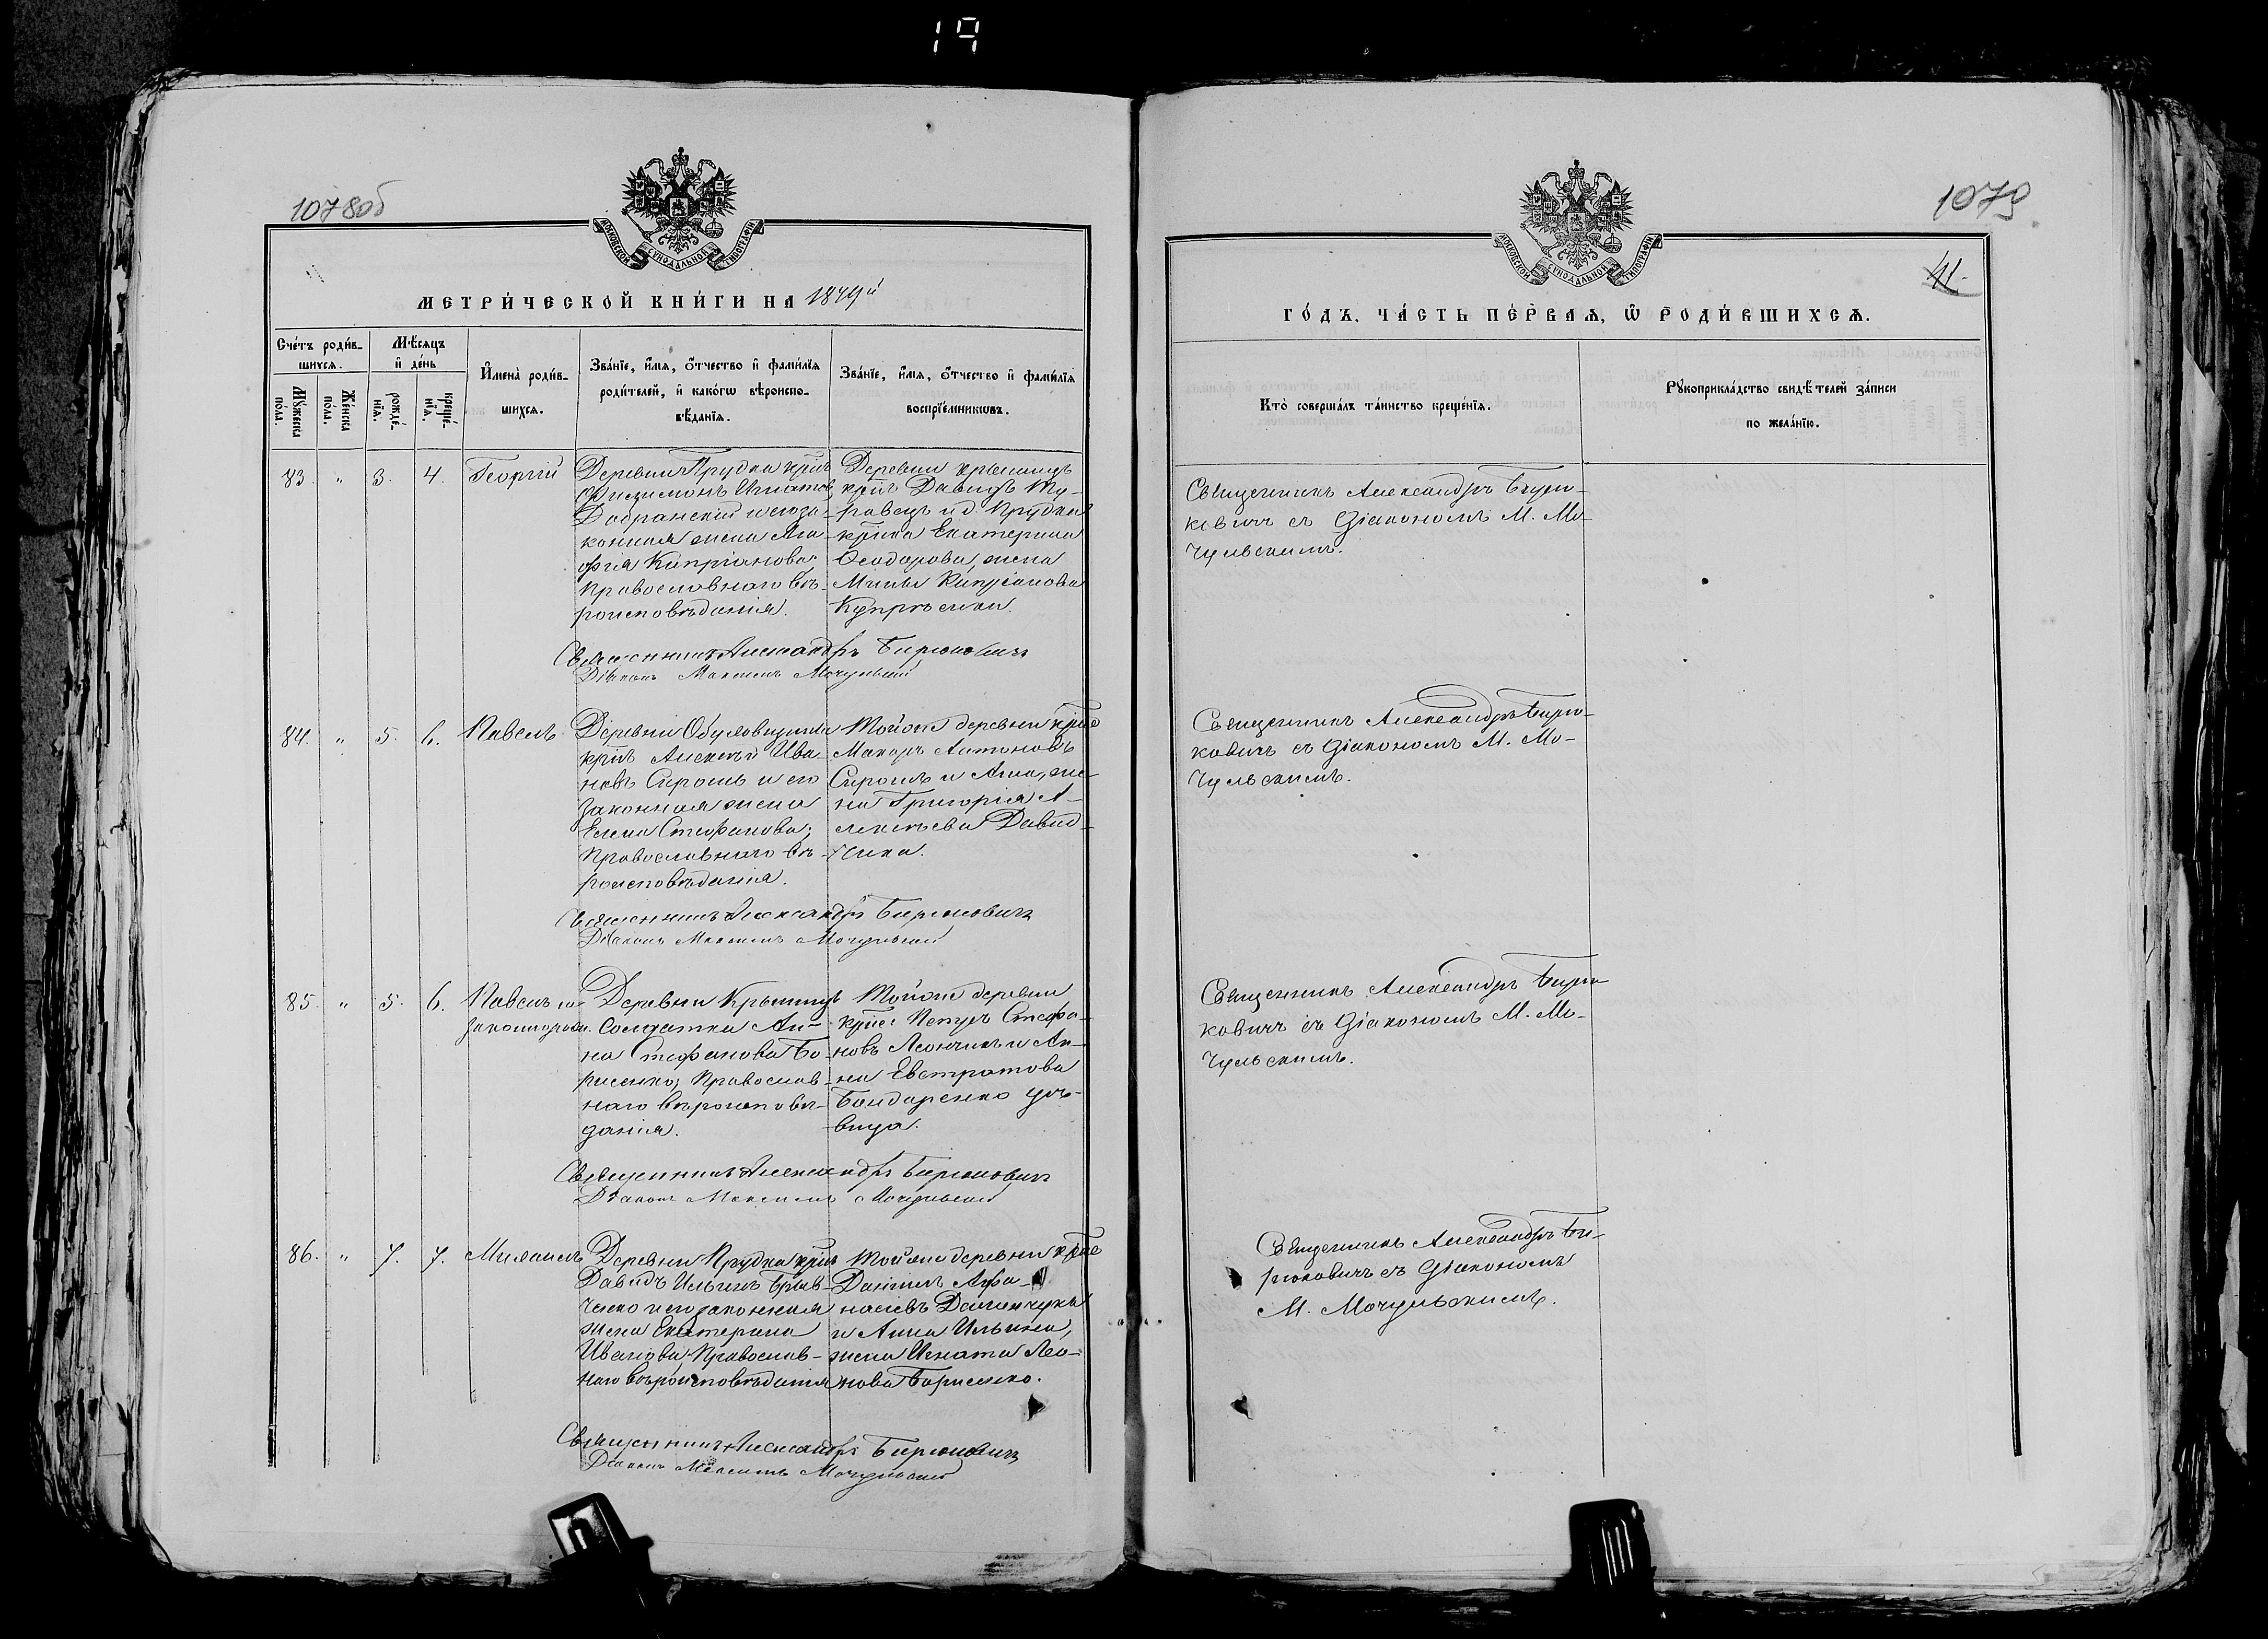 19
1078об
МОСКОВСКОЙ СѴНОДАЛЬНОЙ ТИПОГРАФІИ
МЕТРИ́ЧЕСКОЙ КНИ́ГИ НА 1879й
Сче́тъ роди́в-
шихсѧ.
Мѣ́сѧцъ
и҆ де́нь
Му́жеска
по́ла.
Же́нска
пола.
рожде́-
нїѧ.
креще́-
нїѧ.
И҆мена̀ роди́в-
шихсѧ.
Зва́нїе, и҆́мѧ, ѻ҆́тчество и҆ фамі́лїѧ
роди́телей, и҆ како́гѡ вѣроиспо-
вѣ́данїѧ.
Зва́нїе, и҆́мѧ, ѻ҆́тчество и҆ фамі́лїѧ
воспрїе́мникѡвъ.
83. " 3. 4. Георгій
Деревни Прудка крін
Игнатов
Добранскій и его за-
конная жена Ага-
фія Кипріанова;
православнаго вѣ-
роисповѣданія.
Деревни Крыницъ
крін Давидъ Му-
равецъ и д. Прудка
крінка Екатерина
Ѳеодорова, жена
Мины Кипріанова
Священникъ Александръ Бирюковичъ
Діаконъ Максимъ Мочульскій
84. " 5. 6. Павелъ
Деревни
крін Алексѣй Ива-
новъ Сирошъ и его
законная жена
Елена Стефанова;
православнаго вѣ-
роисповѣданія.
Той же деревни кріне
Макаръ Антоновъ
Сирошъ и Анна, же-
на Григорія А-
лексѣева Давид-
чика.
Священникъ Александръ Бирюковичъ
Діаконъ Максимъ Мочульскій
85. " 5. 6. Павелъ не-
законнорож.
Деревни Крыницъ
солдатка Ан-
на Стефанова Бо-
рисенко; православ-
наго вѣроисповѣ-
данія.
Той же деревни
кріне Петръ Стефа-
новъ Леончикъ и Ан-
на Евстратова
Бондаренко дѣ-
вица.
Священникъ Александръ Бирюковичъ
Діаконъ Максимъ Мочульскій
86. " 7. 7. Михаилъ
Деревни Прудка крін
Давидъ Ильинъ
и его законная
жена Екатерина
Иванова православ-
наго вѣроисповѣданія
Той же деревни кріне
Даніилъ Афа-
насіевъ Даменчукъ
и Анна Ильина,
жена Игната Лео-
нова Борисенко.
Священникъ Александръ Бирюковичъ
Діаконъ Максимъ Мочульскій
1079
41.
МОСКОВСКОЙ СѴНОДАЛЬНОЙ ТИПОГРАФІИ
ГО́ДЪ. ЧА́СТЬ ПЕ́РВАѦ, Ѡ҆ РОДИ́ВШИХСѦ.
Кто̀ соверша́лъ та́инство креще́нїѧ.
Рꙋкоприкла́дство свидѣ́телей за́писи
по жела́нїю.
Священникъ Александръ Бирю-
ковичъ съ діакономъ М. Мо-
чульскимъ.
Священникъ Александръ Бирю-
ковичъ съ діакономъ М. Мо-
чульскимъ.
Священникъ Александръ Бирю-
ковичъ съ діакономъ М. Мо-
чульскимъ.
Священникъ Александръ Би-
рюковичъ съ діакономъ
М. Мочульскимъ.